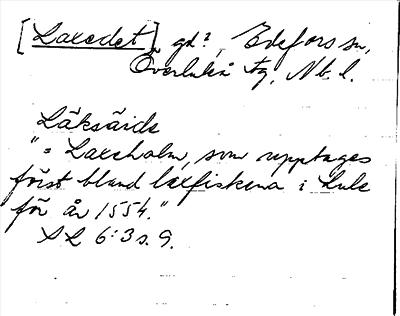 [Laxedet], gd?, Edefors sn,
Överluleå tg, Nb. l.
Läksäide
"= Laxeholm, som upptages
först bland laxfiskena i Lule
för år 1554."
SL 6:3 s. 9.